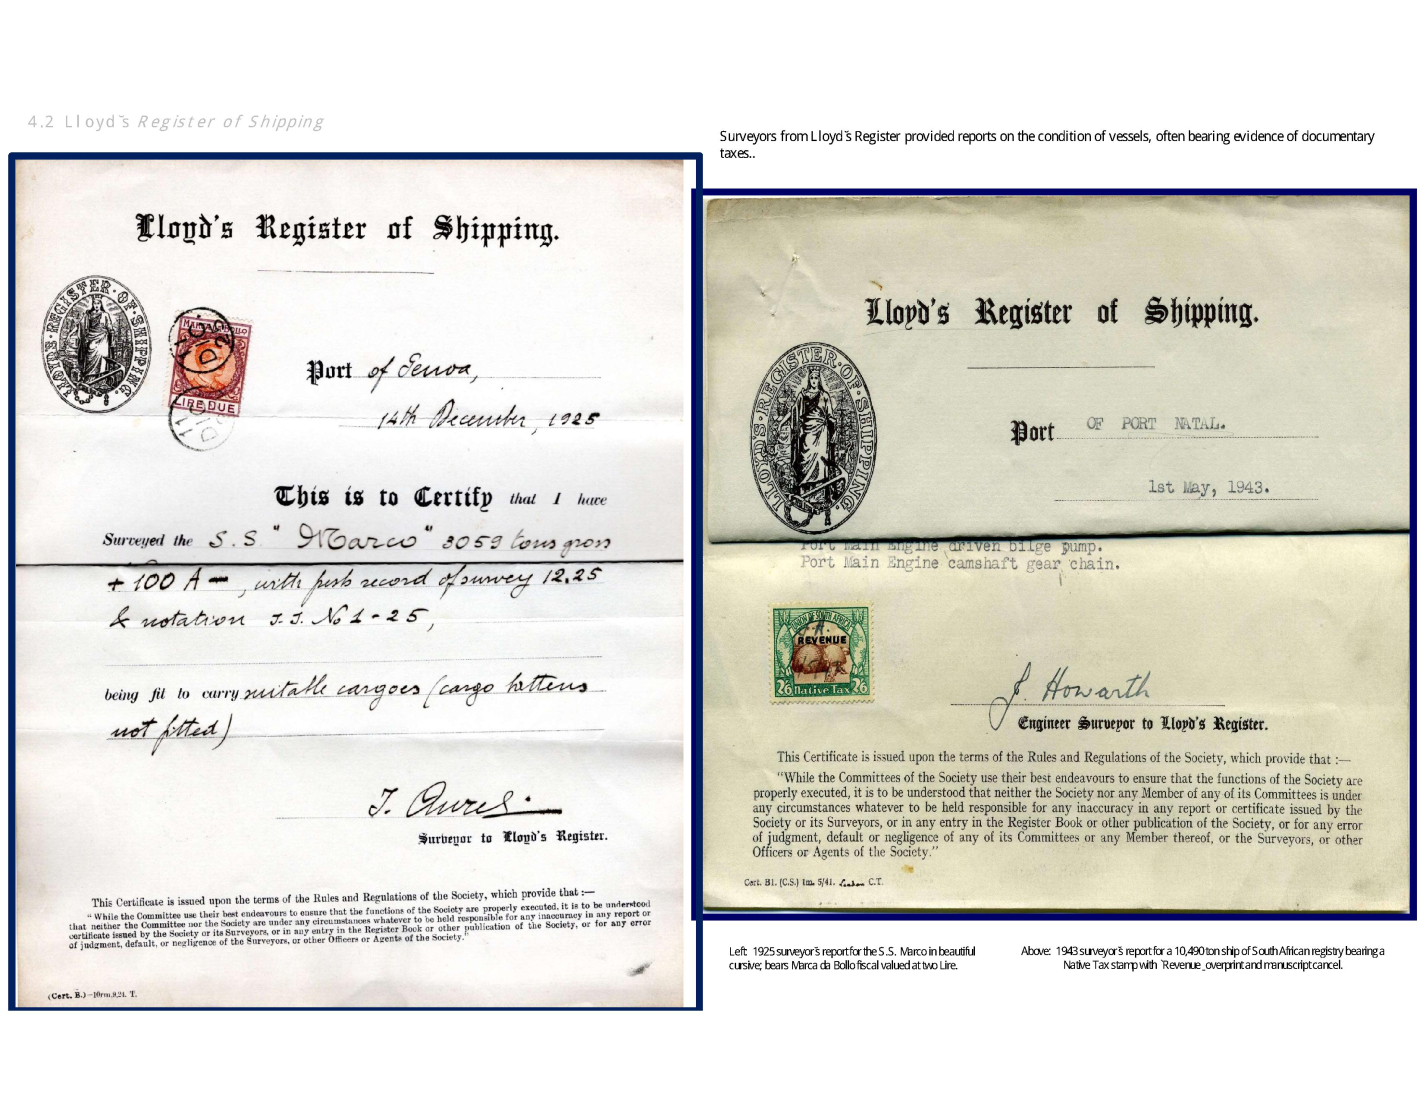 4.2 Lloyd˘s Register of Shipping
Surveyors from Lloyd˘s Register provided reports on the condition of vessels, often bearing evidence of documentary
taxes..
Lloyd's Register of Shipping.
LLOYDS·REGISTER·OF·SHIPPING
MARCA DA BOLLO
LIRE DUE
Port of Genoa,
14th December, 1925
This is to Certify that I have
Surveyed the S.S. "Marco" 3059 tons gross
+ 100 A –, with fresh record of survey 12.25
& notation No 1 - 25,
being fit to carry suitable cargoes (cargo battens
not fitted)
Surveyor to Lloyd's Register.
This Certificate is issued upon the terms of the Rules and Regulations of the Society, which provide that :—
"While the Committee use their best endeavours to ensure that the functions of the Society are properly executed, it is to be understood
that neither the Committee nor the Society are under any circumstances whatever to be held responsible for any inaccuracy in any report or
certificate issued by the Society or its Surveyors, or in any entry in the Register Book or other publication of the Society, or for any error
of judgment, default, or negligence of the Surveyors, or other Officers or Agents of the Society."
(Cert. B.)
Lloyd's Register of Shipping.
LLOYD'S·REGISTER·OF·SHIPPING.
Port OF PORT NATAL.
1st May, 1943.
Port Main Engine driven bilge pump.
Port Main Engine camshaft gear chain.
REVENUE
2/6 Native Tax 2/6
J. Howarth
Engineer Surveyor to Lloyd's Register.
This Certificate is issued upon the terms of the Rules and Regulations of the Society, which provide that :—
"While the Committees of the Society use their best endeavours to ensure that the functions of the Society are
properly executed, it is to be understood that neither the Society nor any Member of any of its Committees is under
any circumstances whatever to be held responsible for any inaccuracy in any report or certificate issued by the
Society or its Surveyors, or in any entry in the Register Book or other publication of the Society, or for any error
of judgment, default or negligence of any of its Committees or any Member thereof, or the Surveyors, or other
Officers or Agents of the Society."
Cert. B1. (C.S.) 1m. 5/41. London C.T.
Left: 1925 surveyor˘s report for the S.S. Marco in beautiful
cursive; bears Marca da Bollo fiscal valued at two Lire.
Above: 1943 surveyor˘s report for a 10,490 ton ship of South African registry bearing a
Native Tax stamp with ˋRevenue¸ overprint and manuscript cancel.